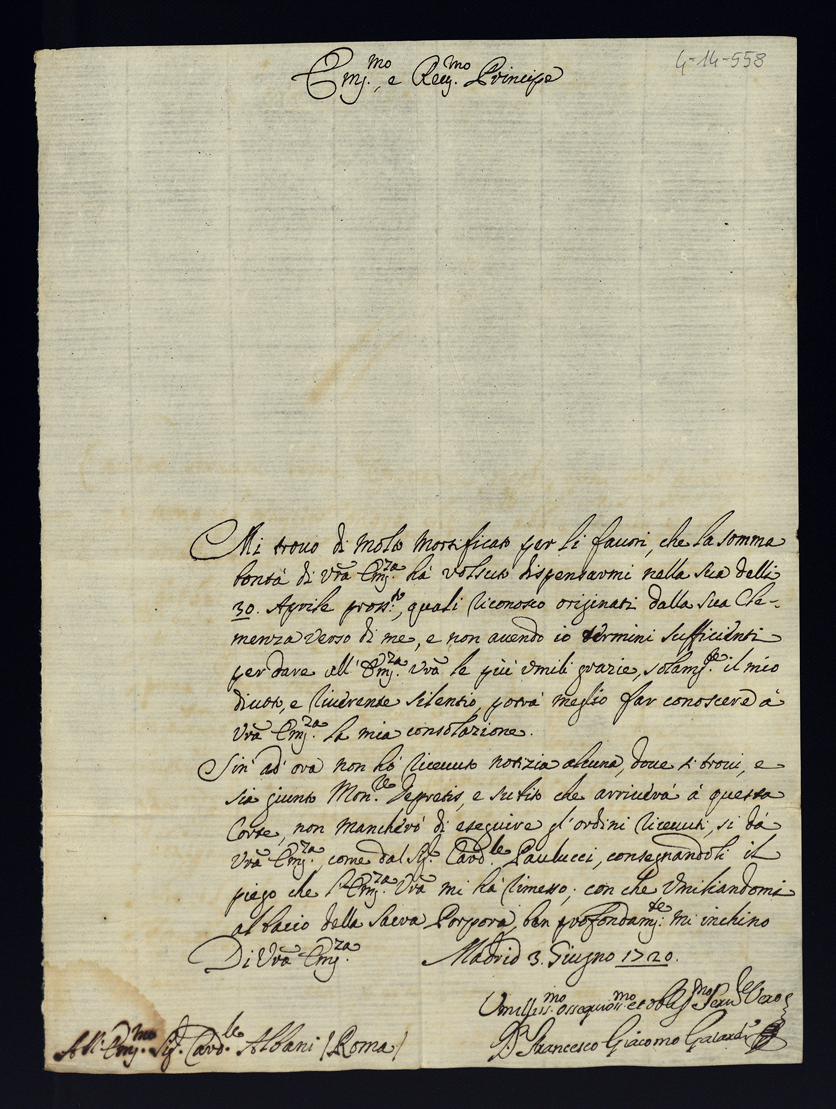 4-14-558
Em.mo, e Rev.mo Principe
Mi trovo di molto mortificato per li favori, che la somma
bontà di Vra Em.za hà volsuto dispensarmi nella sua delli
30. Aprile pross.to, quali riconosco originati dalla sua Cle-
menza verso di me, e non avendo io termini sufficienti
per dare all' Em.za Vra le più umili grazie, solam.te il mio
divoto, e riverente silentio, potrà meglio far conoscere à
Vra Em.za la mia consolazione.
Sin' ad' ora non hò ricevuto notizia alcuna, dove si trovi, e
sia giunto Mon.re Depretis, e subito che arriverà à questa
Corte, non mancherò di eseguire gl' ordini ricevuti, si da
Vra Em.za, come dal Sig.r Card.le Paulucci, consegnandoli il
piego che l' Em.za Vra mi hà rimesso; con che umiliandomi
al bacio della Sacra Porpora, ben profondam.te mi inchino
Di Vra Em.za Madrid 3. Giugno 1720.
Umiliss.mo ossequios.mo et obblig.mo Ser.re Vero
D. Francesco Giacomo
All' Em.mo Sig.r Card.le Albani (Roma)